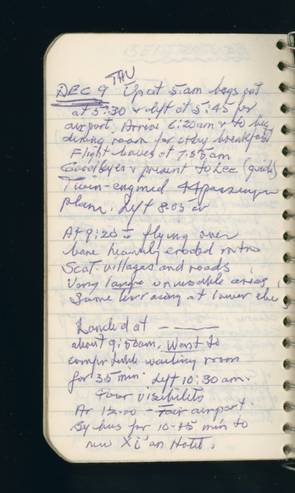 THU
DEC 9 Up at 5 am bags out
at 5:30 & left at 5:45 for
airport. Arrive 6:20am & to big
dining room for breakfast
Flight leaves at 7:55am
Goodbyes & present to Lee (guide)
Twin-engined 44 passenger
plane. Left 8:05
At 9:20 flying over
bare heavily eroded mtns
Scat. villages and roads
Very large areas
Some terracing at lower
Landed at
about 9:50am. Went to
comfortable waiting room
for 35 min. Left 10:30 am.
Poor visibility
Ar 12:00 - Far airport
By bus for 10-15 min to
new Xi'an Hotel.